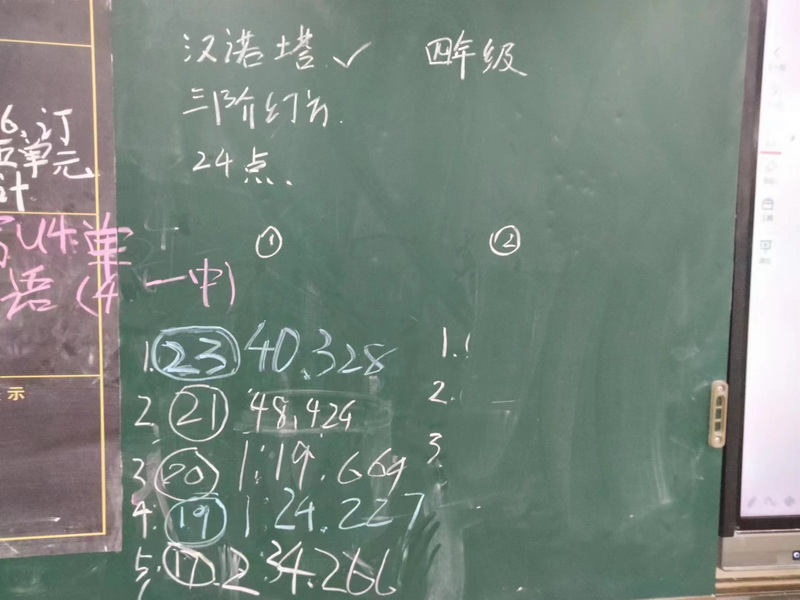 汉诺塔 ✓ 四年级
三阶幻方.
24点.
6.订
单元
计
U4.单
语(4 一中)
示
① ②
1. 23 40.328
2. 21 48.424
3. 20 1:19.664
4. 19 1:24.227
5. 17 2:34.266
1.
2.
3.